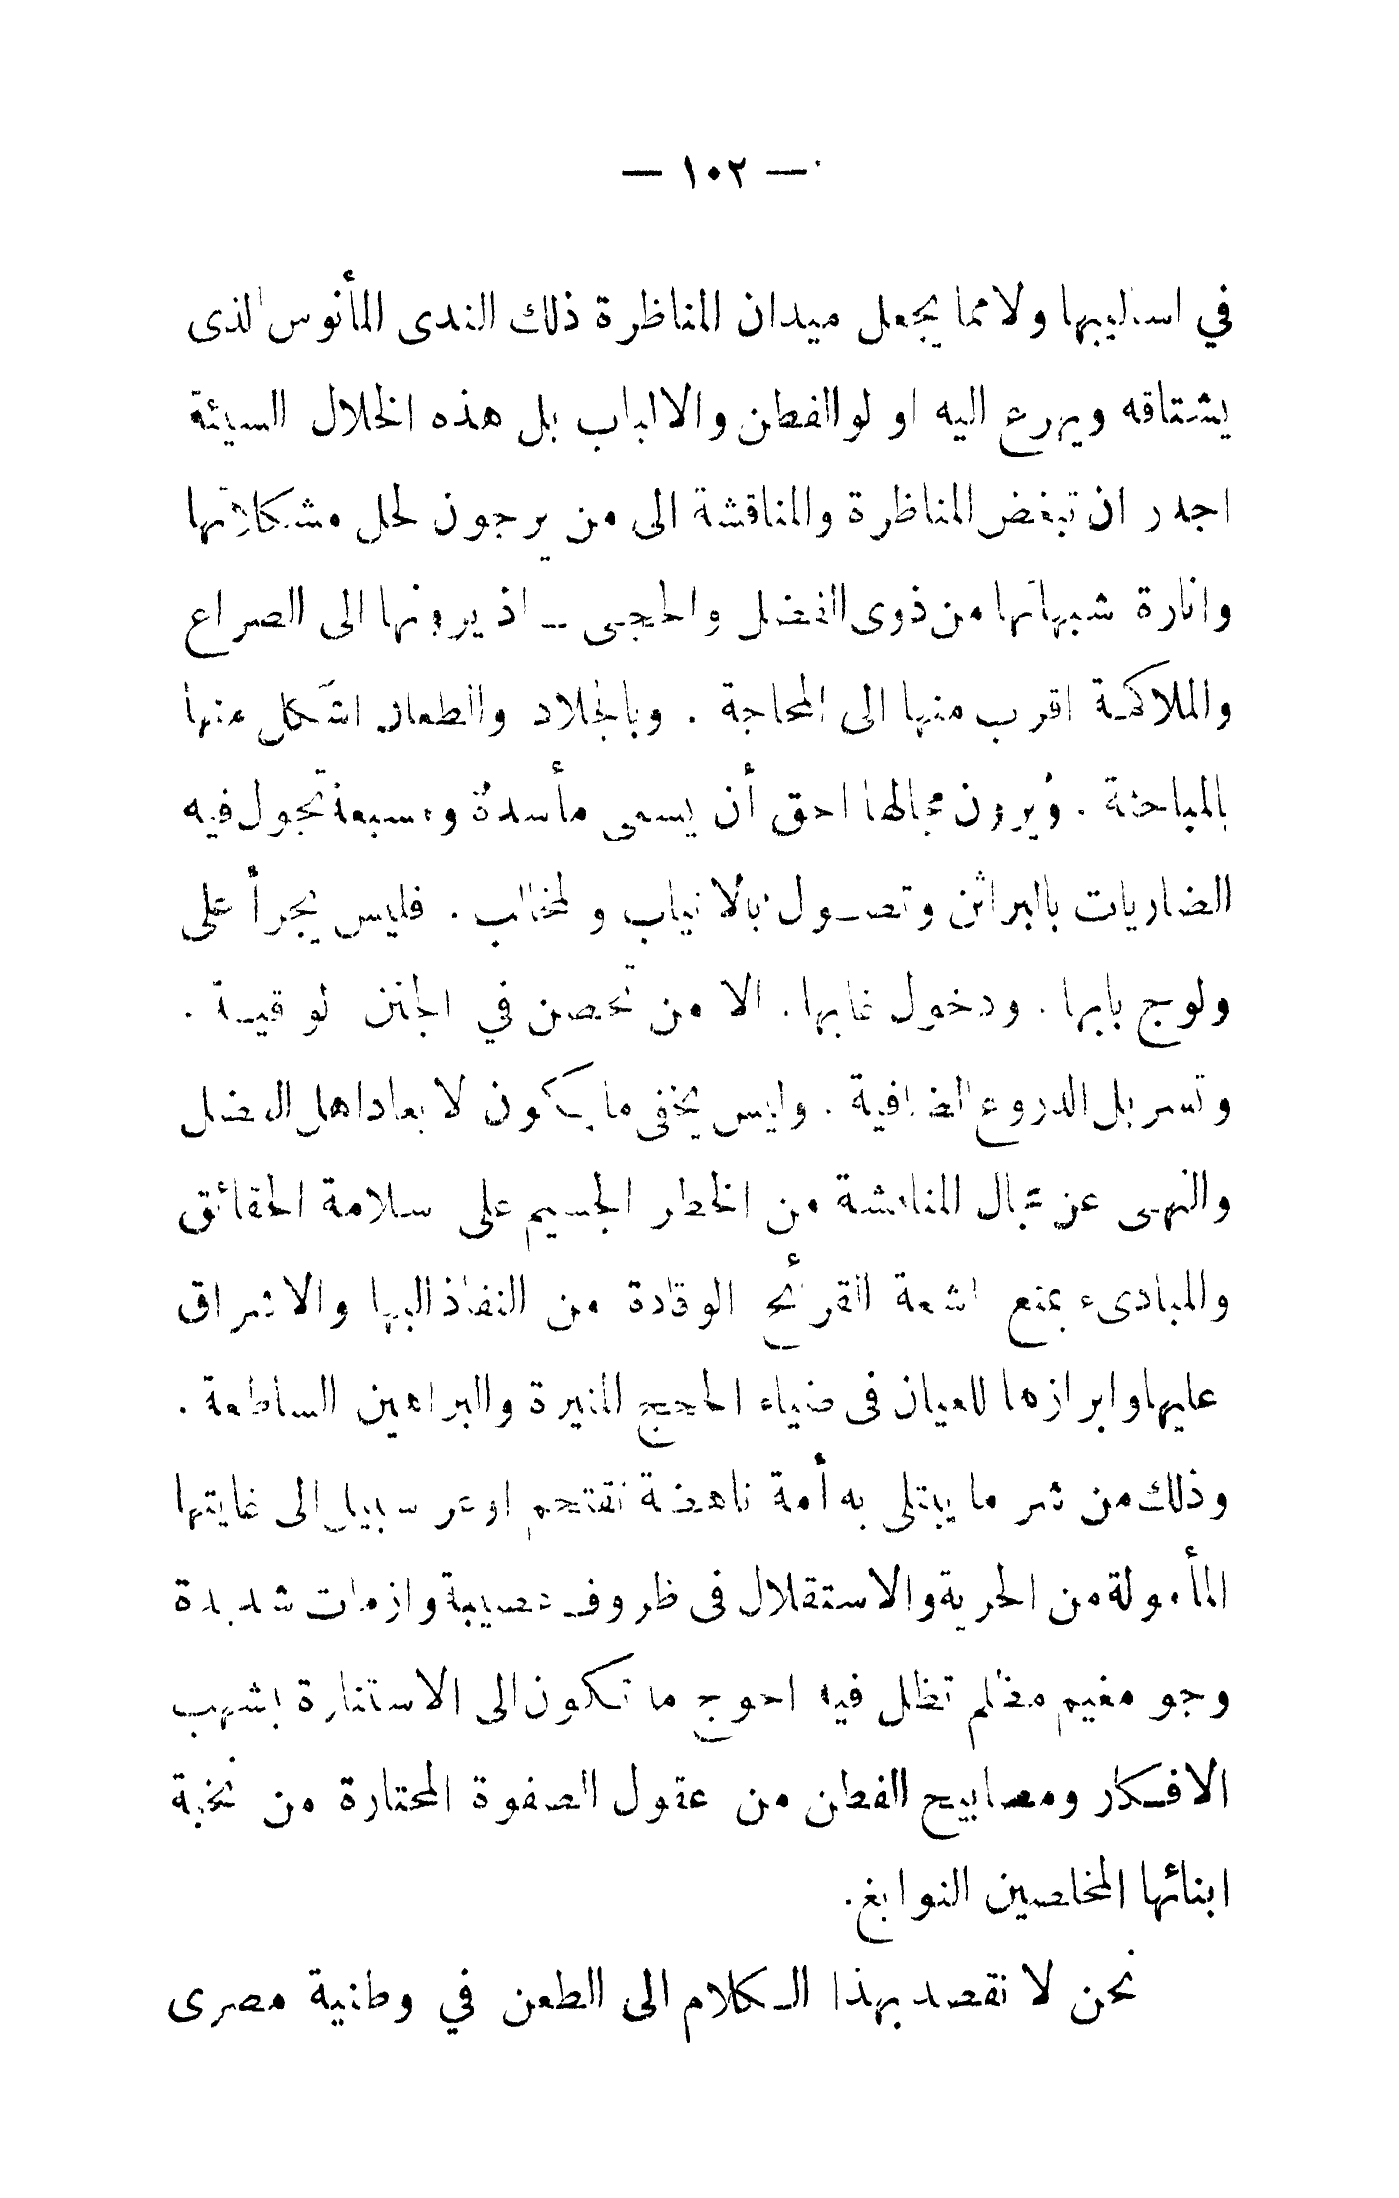 — ١٠٢ —
في اساليبها ولا مما يجعل ميدان المناظرة ذلك الندى المأنوس الذى
يشتاقه ويهرع اليه او لو الفطن والالباب بل هذه الخلال السيئة
اجدر ان تبغض المناظرة والمناقشة الى من يرجون لحل مشكلاتها
وانارة شبهاتها من ذوى الفضل والحجى — اذ يرونها الى الصراع
والملاكمة اقرب منها الى المحاجة . وبالجلاد والطعان اشكل منها
بالمباحثة . ويرون مجالها احق أن يسمى مأسدة ومسبعة تجول فيه
الضاريات بالبراثن وتصول بالانياب والمخالب . فليس يجرأ على
ولوج بابها . ودخول غابها . الا من تحصن في الجنن الوقية .
وتسربل الدروع الضافية . وليس يخفى ما يكون لابعاد اهل الفضل
والنهى عن مجال المناقشة من الخطر الجسيم على سلامة الحقائق
والمبادىء بمنع اشعة القرأئح الوقادة من النفاذ اليها والاشراق
عليها وابرازها للعيان فى ضياء الحجج المنيرة والبراهين الساطعة .
وذلك من شر ما يبتلى به أمة ناهضة تقتحم اوعر سبيل الى غايتها
المأمولة من الحرية والاستقلال فى ظروف عصيبة وازمات شديدة
وجو مغيم مظلم تظل فيه احوج ما تكون الى الاستنارة بشهب
الافكار ومصابيح الفطن من عقول الصفوة المختارة من نخبة
ابنائها المخلصين النوابغ .
نحن لا نقصد بهذا الكلام الى الطعن في وطنية مصرى